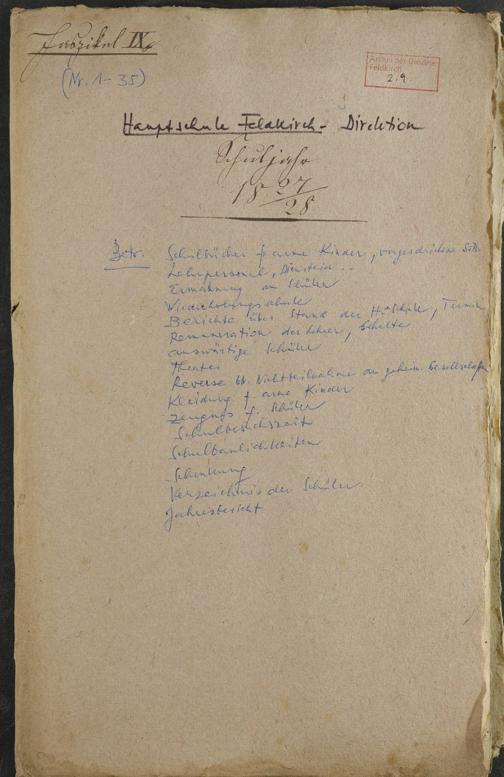 Faszikel IX.
(Nr. 1-35)
Archiv der Diözese
Feldkirch
2.9
Hauptschule Feldkirch - Direktion
Schuljahr
1827/28
Betr. Schulbücher f. arme Kinder, vorgeschriebene
Lehrpersonal, Dienstein..
Ermahnung an Schüler
Wiederholungsschule
Berichte über Stand der Hptschule,
Remuneration der Lehrer, Gehälter
auswärtige Schüler
Theater
Reverse bt. Nichtteilnahme an geheim. Gesellschaften
Kleidung f. arme Kinder
Zeugnis f. Schüler
Schulbesuchszeit
Schulbaulichkeiten
Schenkung
Verzeichnis der Schüler
Jahresbericht